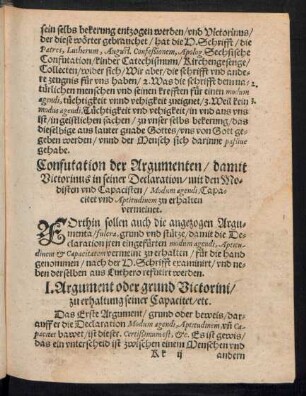 sein selbs bekerung entzogen werden / vnd Victorinus /
der diese wörter gebrauchet / hat die H. Schrifft / die
Patres, Lutherum, August. Confessionem, Apolog. Sechsische
Confutation / kinder Catechismum / Kirchengesenge /
Collecten / wider sich / Wir aber / die schrifft vnd ande-
re zeugnis für vns haben / 2. Was die schrifft dem na-
türlichen menschen vnd seinen krefften für einen modum
agendi, tüchtigkeit vnnd vehigkeit zueignet / 3. Weil kein
modus agendi, Tüchtigkeit vnd vehigkeit / in vnd aus vns
ist / in geistlichen sachen / zu vnser selbs bekerung / das
dieselbige aus lauter gnade Gottes / vns von Gott ge-
geben werden / vnnd der Mensch sich darinne passiue
gehabe.
Confutation der Argumenten / damit
Victorinus in seiner Declaration / mit den Mo-
disten vnd Capacisten / Modum agendi, Capa-
citet vnd Aptitudinem zu erhalten
vermeinet.
FOrthin sollen auch die angezogen Argu-
menta / fulcra, grund vnd stütze / damit die De-
claration jren eingefürten modum agendi, Aptitu-
dinem & Capacitatem vermeint zu erhalten / für die hand
genommen / nach der H. Schrifft examinirt / vnd ne-
ben derselben aus Luthero refutirt werden.
I. Argument oder grund Victorini /
zu erhaltung seiner Capacitet / etc.
Das Erste Argument / grund oder beweis / dar-
auff er die Declaration Modum agendi, Aptitudinem, vñ Ca-
pacitet bawet / ist dieses. Certissimum est, &c. Es ist gewis /
das ein vnterscheid ist zwischen einem Menschen vnd
Kk ij andern